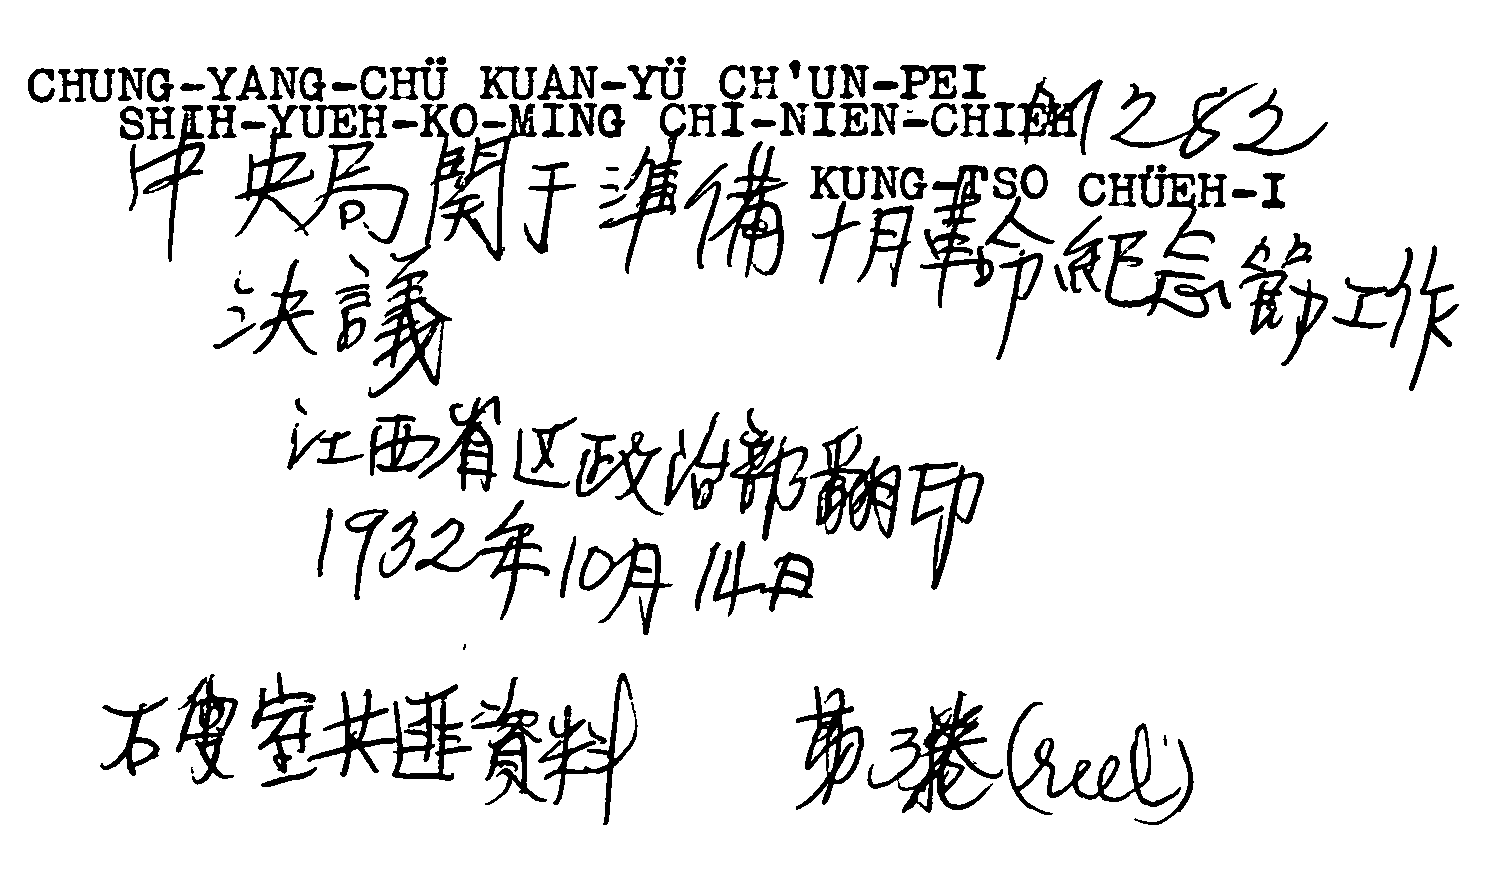 CHUNG-YANG-CHÜ KUAN-YÜ CH'UN-PEI
SHIH-YUEH-KO-MING CHI-NIEN-CHIEH 1282
KUNG-TSO CHÜEH-I
中央局関于準備十月革命紀念節工作
决議
江西省区政治部翻印
1932年10月14日
石叟室共匪資料 第3捲(reel)